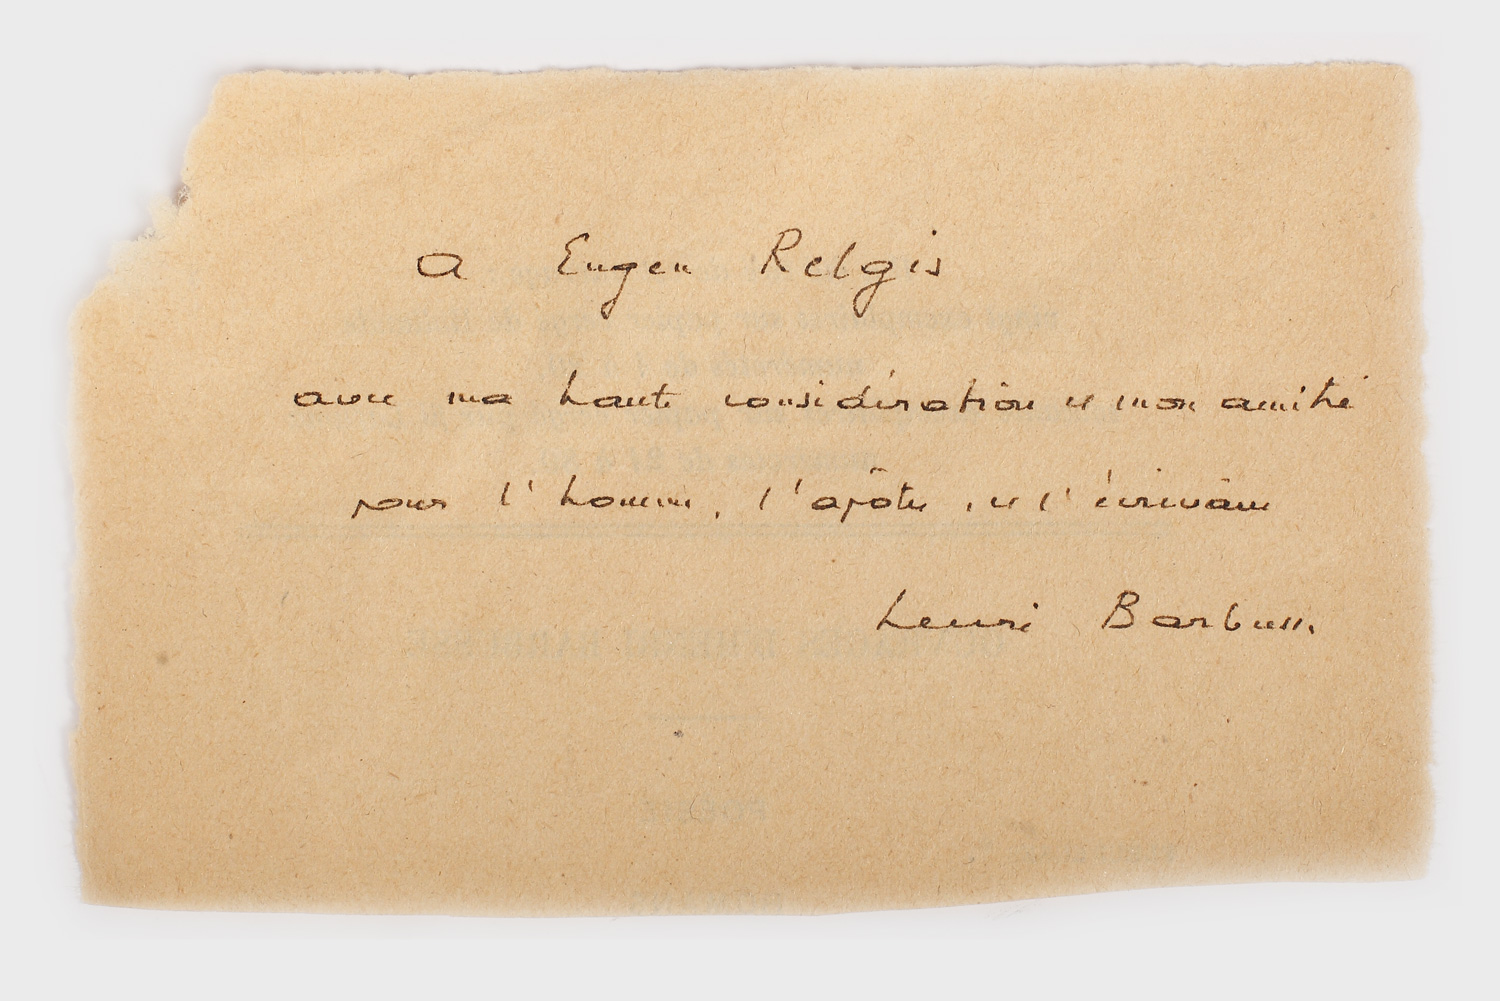 a Eugen Relgis
avec ma haute considération et mon amitié
pour l'homme, l'apôtre, et l'écrivain
Henri Barbusse